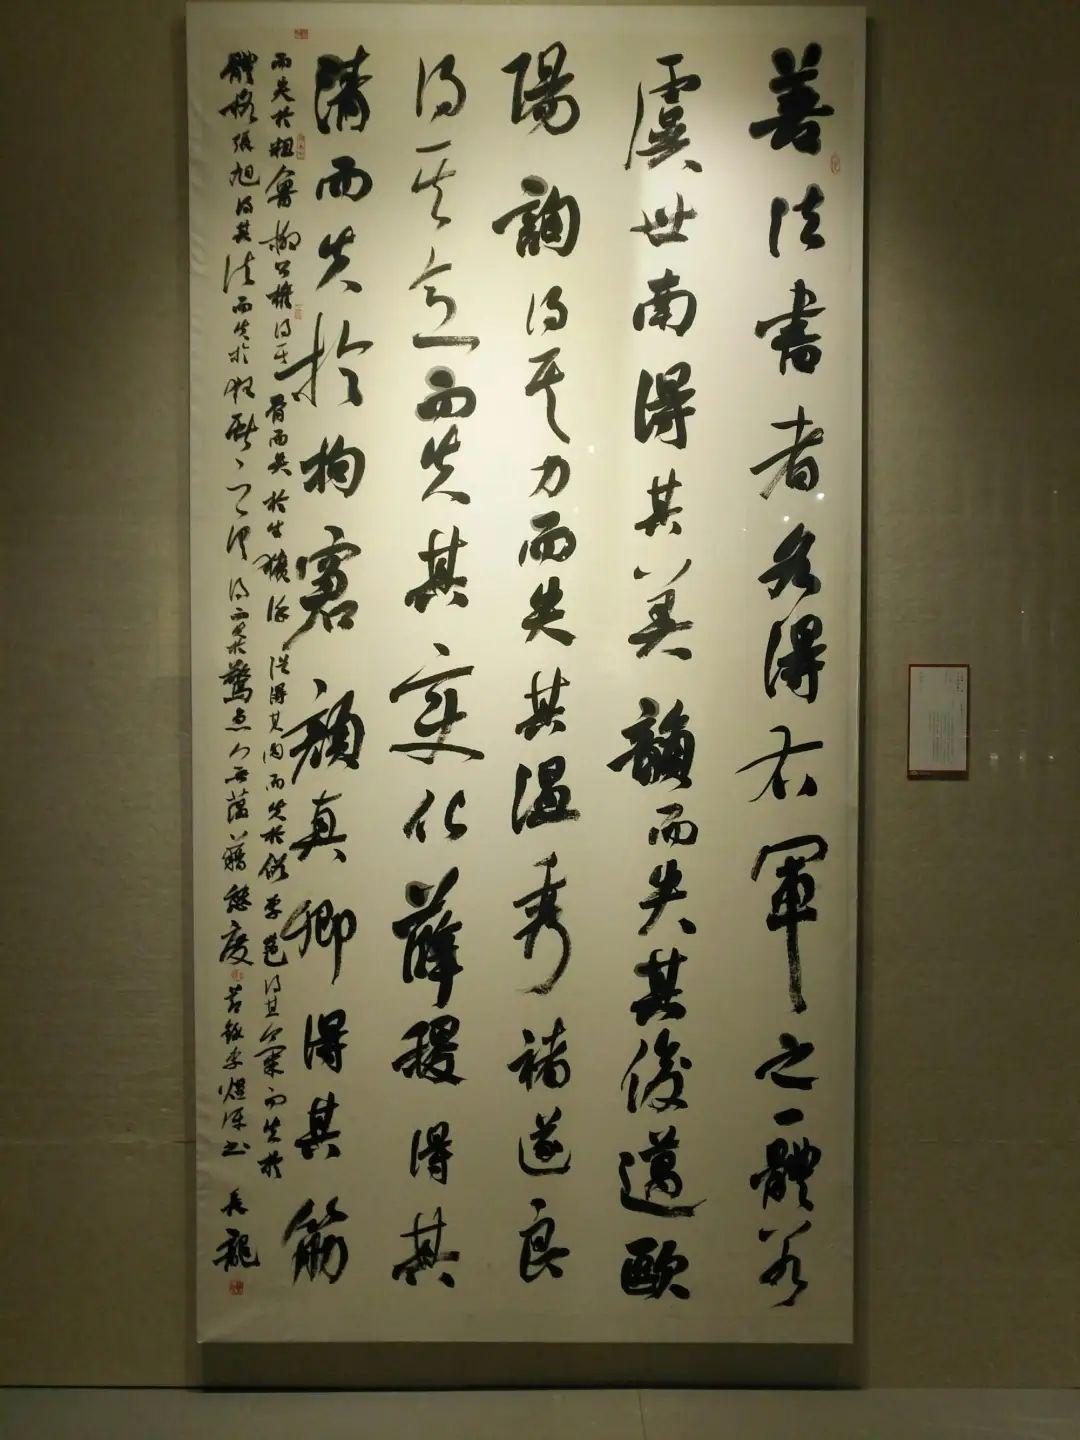 善法書者各得右軍之一體若
虞世南得其美韻而失其俊邁歐
陽詢得其力而失其温秀褚遂良
得其意而失其變化薛稷得其
清而失於拘窘顔真卿得其筋
而失於粗魯柳公權得其骨而失於生獷徐浩得其肉而失於俗李邕得其氣而失於
體格張旭得其法而失於狂獻之俱得而失驚急無蘊藉態度李煜